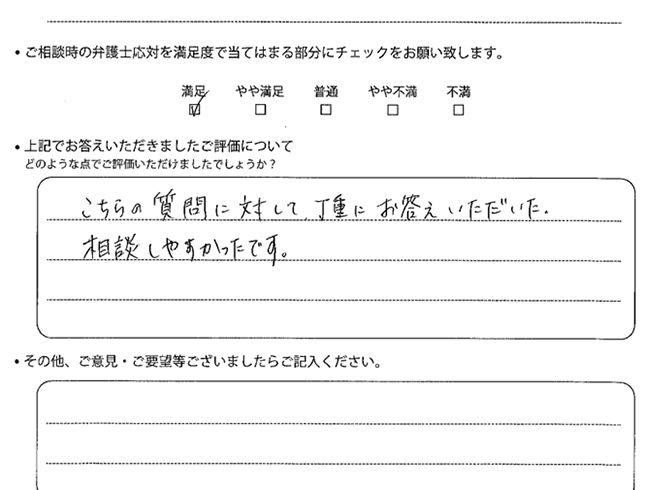 ・ご相談時の弁護士応対を満足度で当てはまる部分にチェックをお願い致します。
満足 やや満足 普通 やや不満 不満
・上記でお答えいただきましたご評価について
どのような点でご評価いただけましたでしょうか?
こちらの質問に対して、丁重にお答えいただいた。
相談しやすかったです。
・その他、ご意見・ご要望等ございましたらご記入ください。